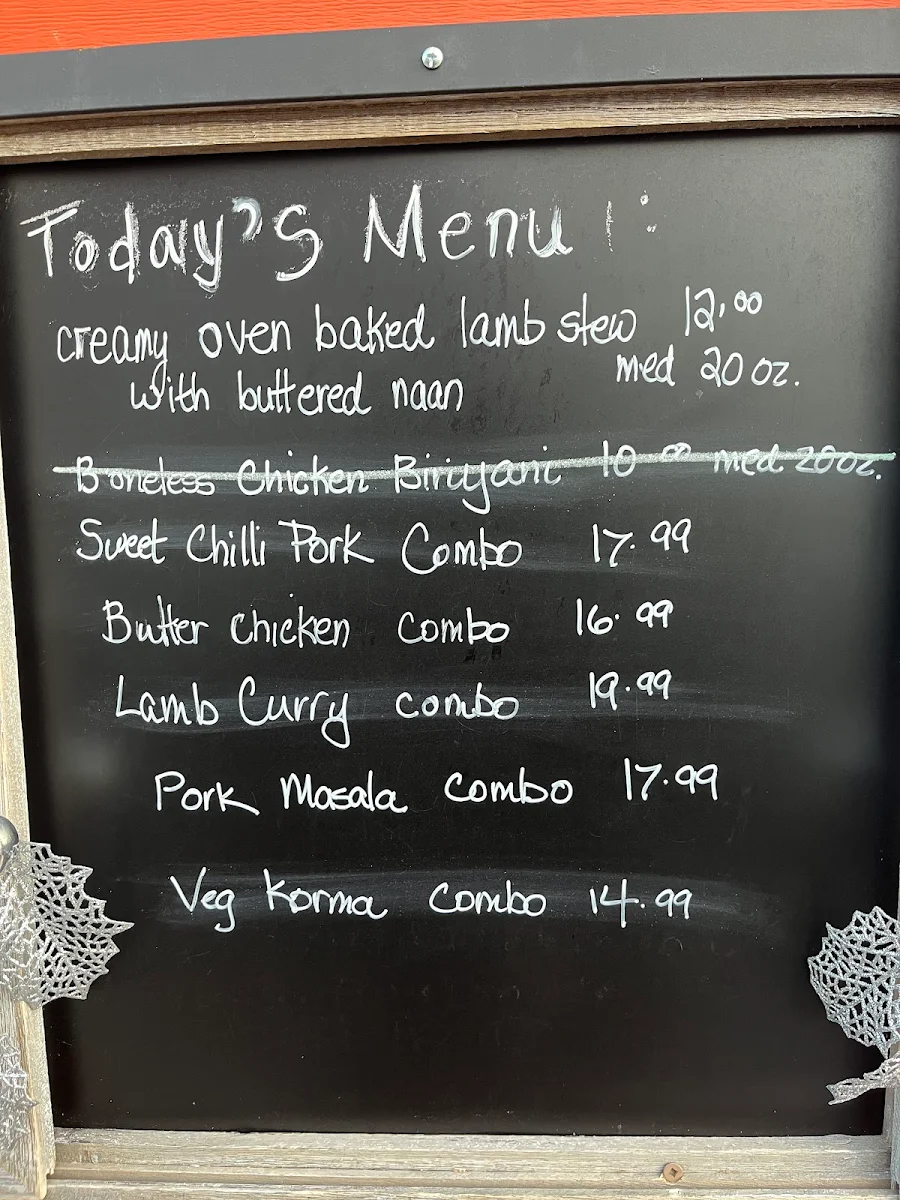 Today's Menu :
creamy oven baked lamb stew 12.00
with buttered naan med 20 oz.
Boneless Chicken Biriyani 10.00 med 20 oz.
Sweet Chilli Pork Combo 17.99
Butter chicken combo 16.99
Lamb Curry combo 19.99
Pork Masala combo 17.99
Veg Korma Combo 14.99